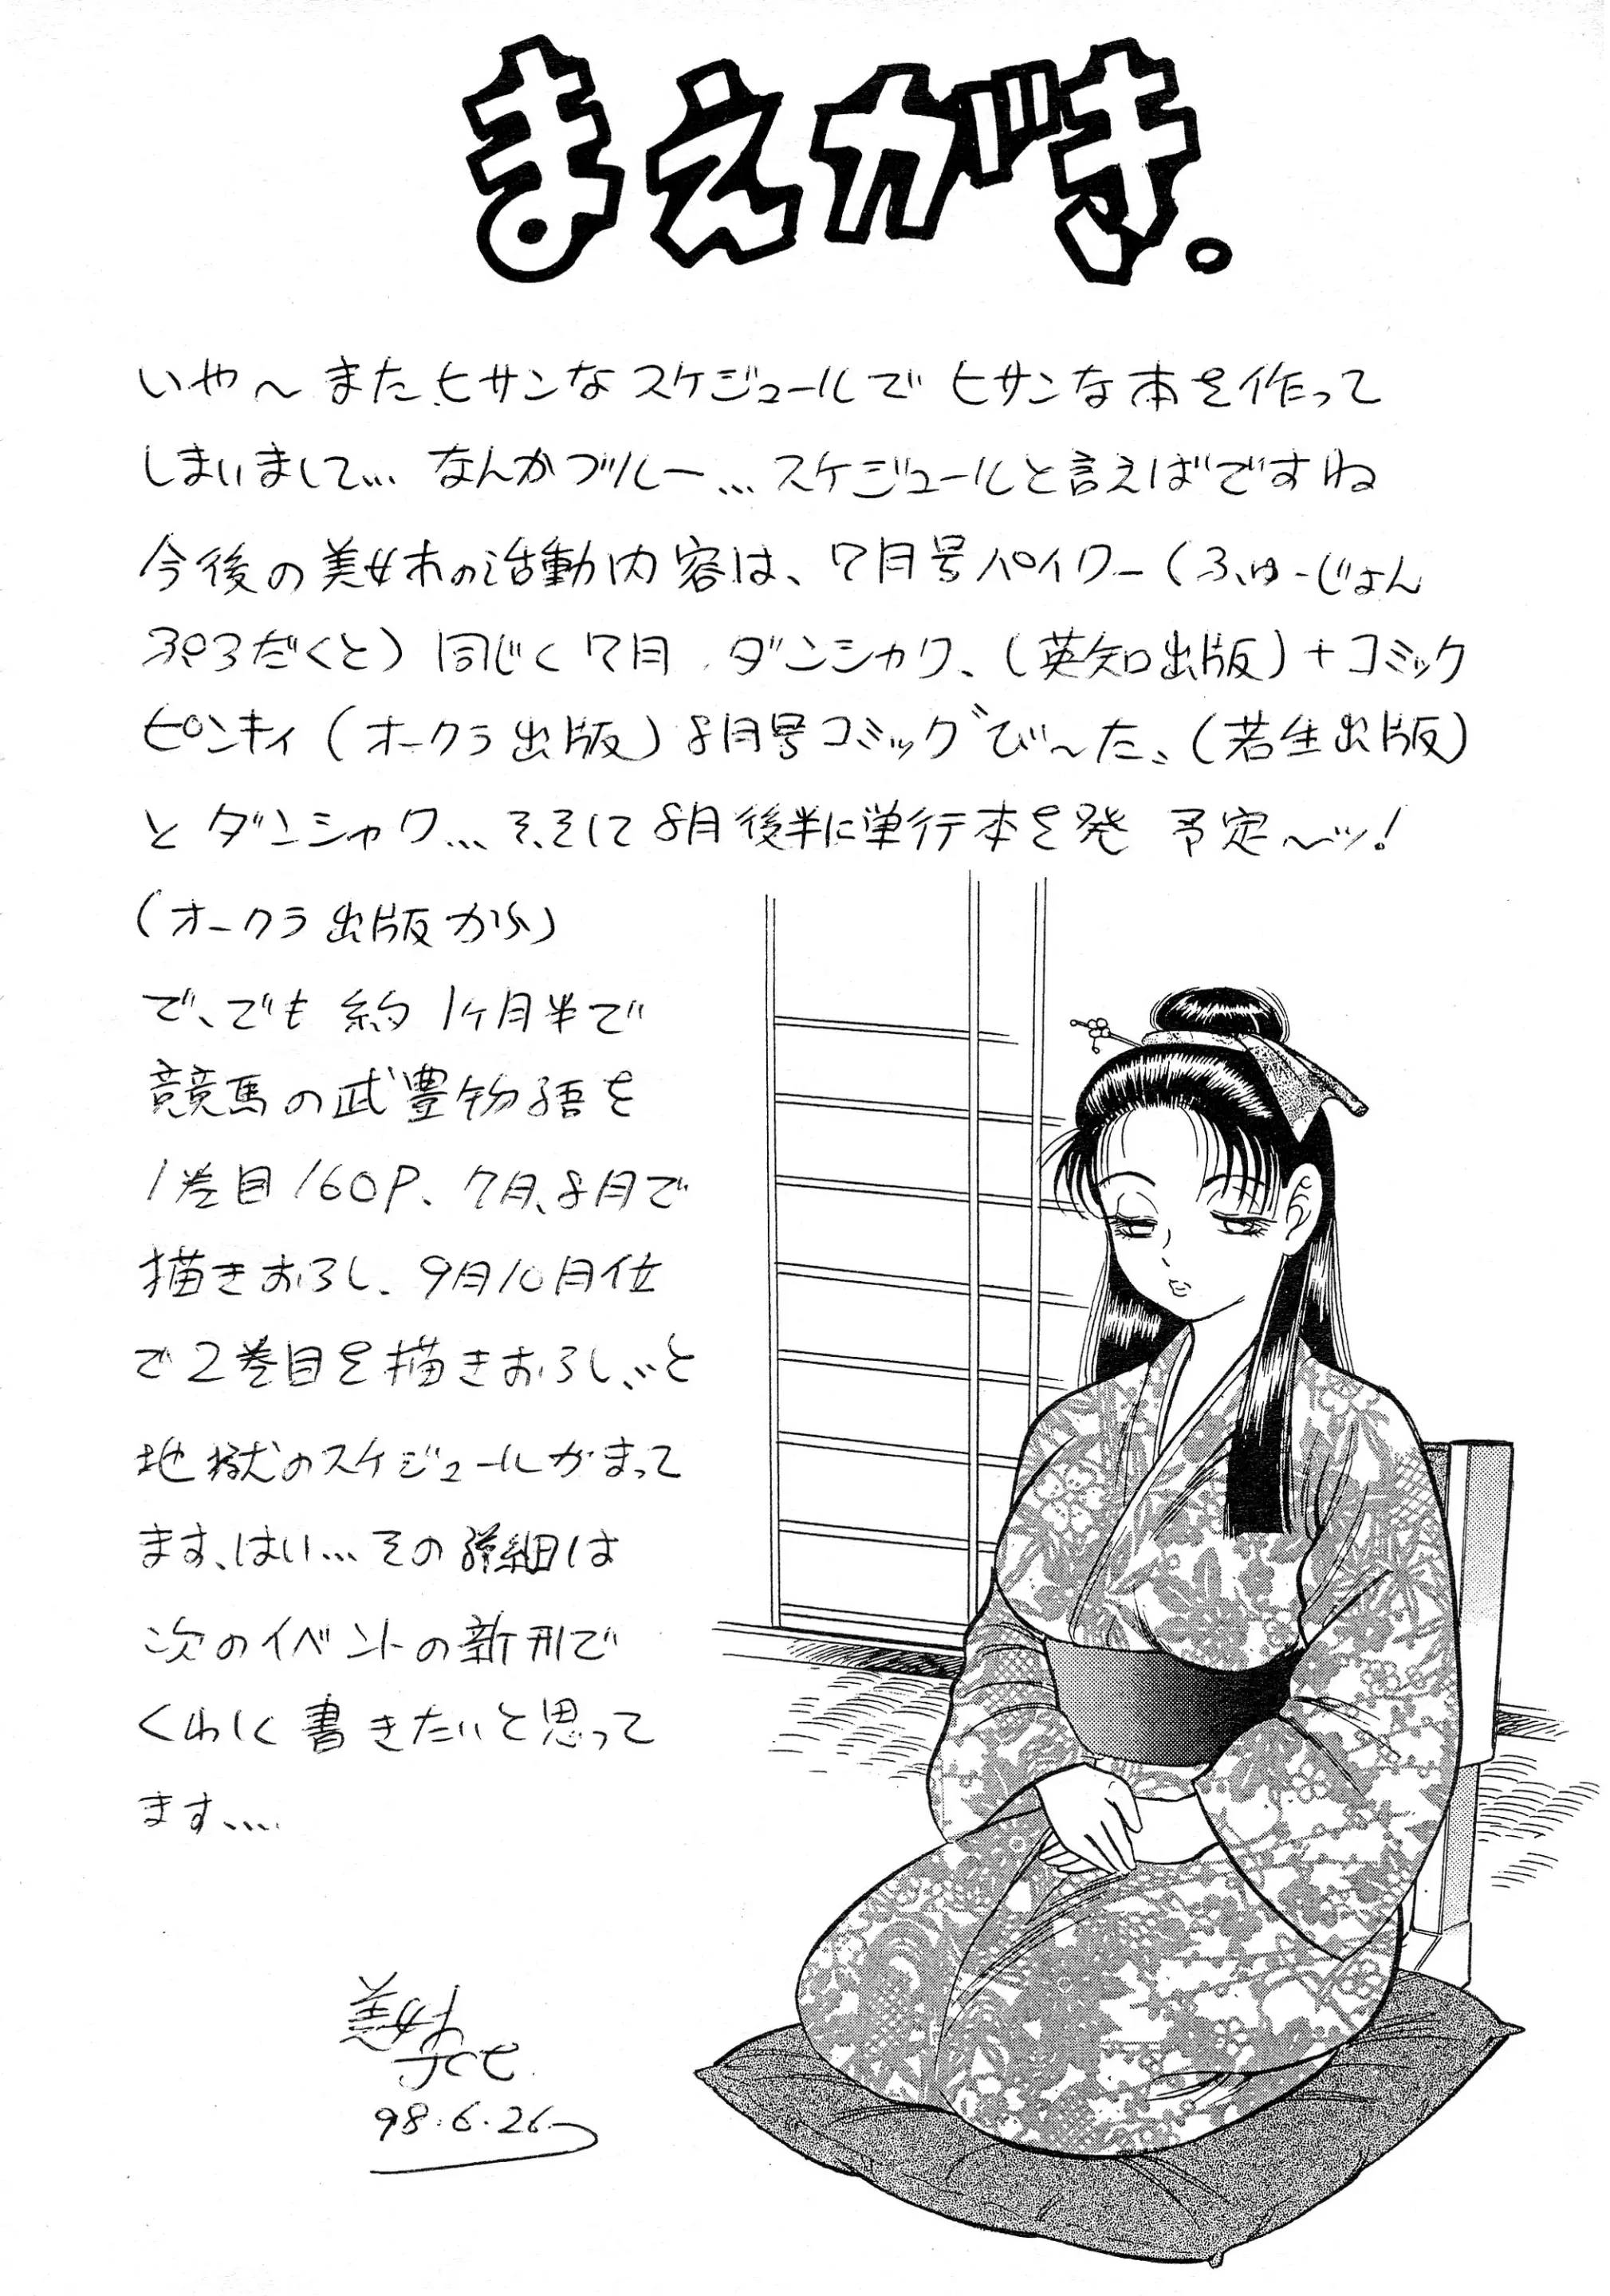 まえがき。
いや〜またヒサンなスケジュールでヒサンな本を作って
しまいまして… なんかブルー…スケジュールと言えばですね
今後の美女木の活動内容は、7月号パイワー(ふゅーじょん
ぷろだくと)同じく7月、ダンシャク、(英知出版)+コミック
ピンキィ(オークラ出版)8月号コミックび〜た、(若生出版)
とダンシャク…そ、そして8月後半に単行本を発 予定〜ッ!
(オークラ出版から)
で、でも 約1ヶ月半で
競馬の武豊物語を
1巻目160P、7月、8月で
描きおろし、9月10月位
で2巻目を描きおろし、、と
地獄のスケジュールがまって
ます、はい…その詳細は
次のイベントの新刊で
くわしく書きたいと思って
ます….
美女木
98.6.26